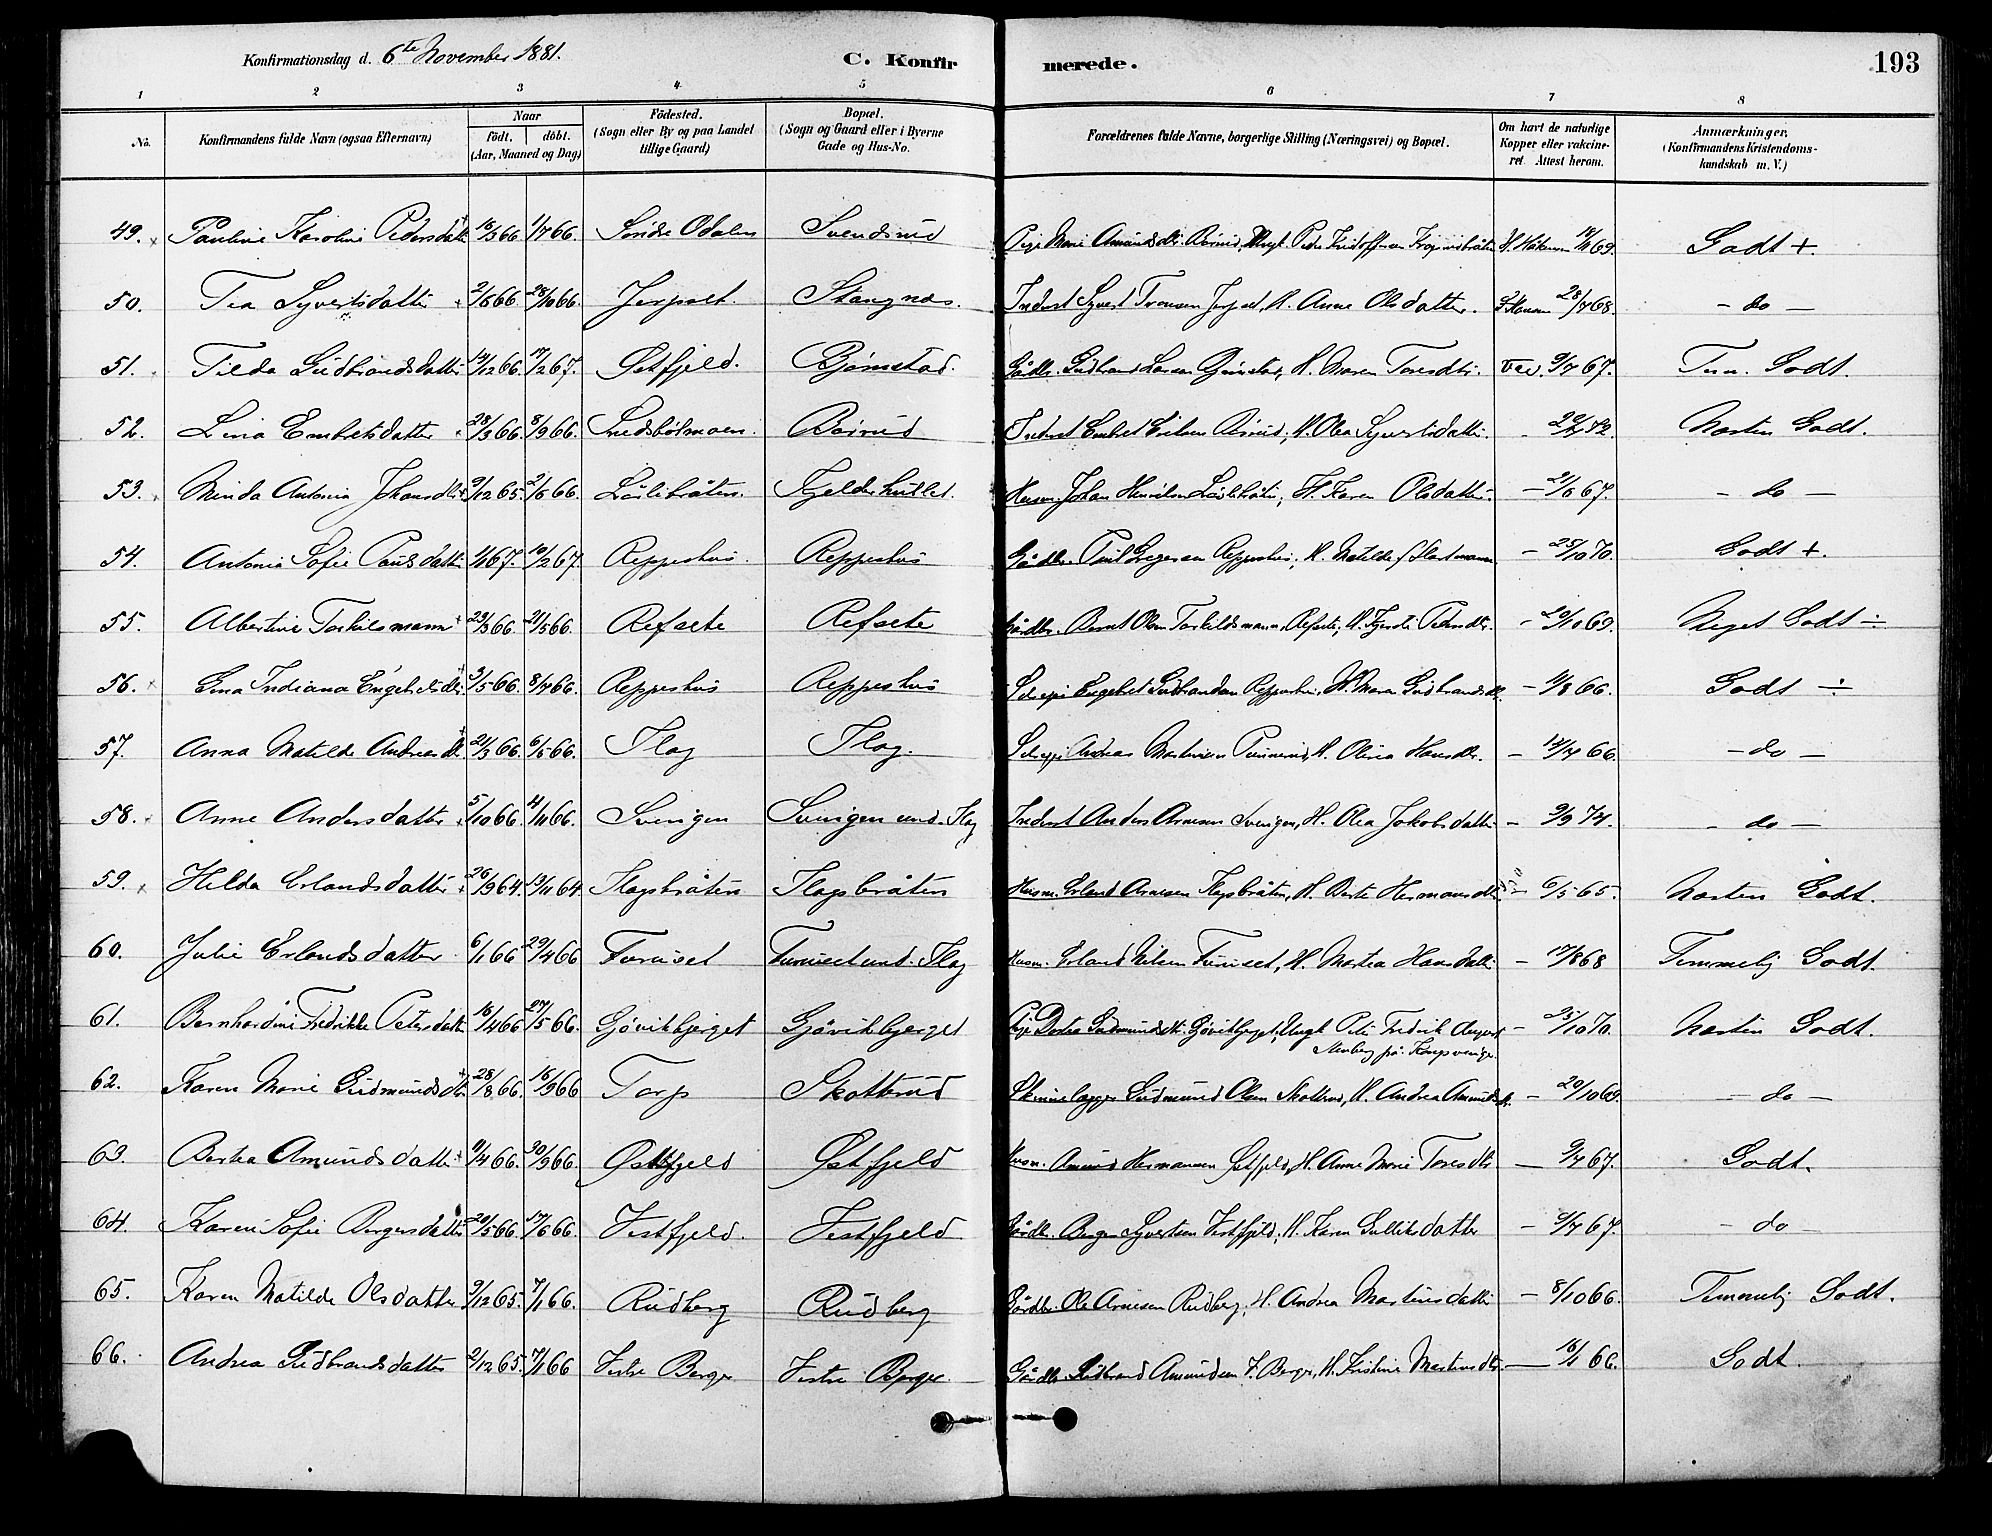 Konfirmationsdag d. 6te November 1881.
C. Konfirmerede.
193
1 2 3 4 5 6 7 8
No. Konfirmandens fulde Navn (ogsaa Efternavn) Naar födt. döbt. (Aar, Maaned og Dag) Födested. (Sogn eller By og paa Landet tillige Gaard) Bopæl. (Sogn og Gaard eller i Byerne Gade og Hus-No. Forældrenes fulde Navne, borgerlige Stilling (Næringsvei) og Bopæl. Om havt de naturlige Kopper eller vakcineret. Attest herom. Anmærkninger. (Konfirmandens Kristendomskundskab m. V.)
49. Pauline Karoline Pedersdatter 18/3 66 1/7 66. Söndre Odalen Svendsrud Pige Marie Amundsdtr. H. Håkensen 69. Godt +
50. Tea Syvertsdatter 2/6 66 28/10 66. Jerpset. Stangnes. Inderst Syvert Tronsen Jerpset, H. Anne Olsdatter. 28/7 68. – do –
51. Tilda Gudbrandsdatter 19/12 66. 17/2 67. Østfjeld. Björnstad. Gårdbr. Gudbrand Larsen Björnstad, H. Maren Toresdtr. Vac. 9/7 67. Godt.
52. Lina Embretsdatter 28/3 66. 8/9 66. Börud Inderst Embret Börud, H. Olea Syvertsdatter. Næsten Godt.
53. Minda Antonia Johansdtr 9/12 65. 2/5 66. Husm. Johan H. Karen Olsdatter – 2/6 67. – do –
54. Antonia Sofie Paulsdatter 1/1 67. 10/2 67. Reppeshus. Reppeshus Gårdbr. Paul Gregersen Reppeshus, H. Matilde Hartmann – 25/10 70. Godt +.
55. Albertine Torkilsmann 23/3 66. 21/5 66. Refsete Refsete Gårdbr. Bernt Olsen Torkildsmann, Refsete, H. – 20/10 69. Meget Godt ÷
56. Gina Indiana Engebretsdtr. 3/5 66. 8/7 66. Reppeshus Reppeshus Engebret Gudbrandsen Reppeshus, H. Maren Gudbrandsdtr. – 4/8 66. Godt ÷
57. Anna Matilde Andreasdtr 21/3 66. 6/5 66. Flag Flag. Andreas Martinsen H. Olina Hansdtr. – 14/7 66. – do –
58. Anne Andersdatter 5/10 66. 4/11 66. Svingen Svingen und. Flag Inderst Anders Arnesen Svingen, H. Olea Jakobsdatter – 9/9 74. – do –
59. Helda Erlandsdatter 26/9 64. 13/11 64 Flagsbråten Flagsbråten Husm. Erland Arnesen Flagsbråten, H. Berte Hermansdtr. – 6/5 65. Næsten Godt.
60. Julie Erlandsdatter 6/1 66 29/4 66 Furuset Furuset und. Flag Husm. Erland Nilsen Furuset, H. Martea Hansdatter – 17/8 68 Temmelig Godt.
61. Bernhardine Fredrikke Petersdatter 16/4 66 27/5 66. Gjövikbjerget Gjövikbjerget Pige Dortea Gudmundsdtr. Gjövikbjerget, Ungk. Peter Fredrik August
Stenberg på Kongsvinger – 25/10 70. Næsten Godt.
62. Karen Marie Gudmundsdtr 28/8 66. 16/9 66 Torp Skotterud Gudmund Olsen Skotterud, H. Andrea Amundsdtr. – 20/10 69. – do –
63. Bertea Amundsdatter 9/4 66. 30/9 66. Østfjeld Østfjeld Husm. Amund Hermansen Østfjeld, H. Anne Marie Toresdtr – 9/7 67. Godt.
64. Karen Sofie Bergersdatter 20/5 66. 17/6 66. Vestfjeld. Vestfjeld Gårdbr. Berger Syvertsen Vestfjeld, H. Karen Gulliksdatter – 9/7 67. – do –
65. Karen Matilde Olsdatter 9/12 65. 7/1 66. Rudberg Rudberg Gårdbr. Ole Arnesen Rudberg, H. Andrea Martinsdatter – 8/10 66. Temmelig Godt.
66. Andrea Gudbrandsdatter 2/12 65. 7/1 66 Vestre Berger Vestre Berger Gårdbr. Gudbrand Amundsen V. Berger, H. Kristine Martinsdtr. – 16/1 66. Godt.